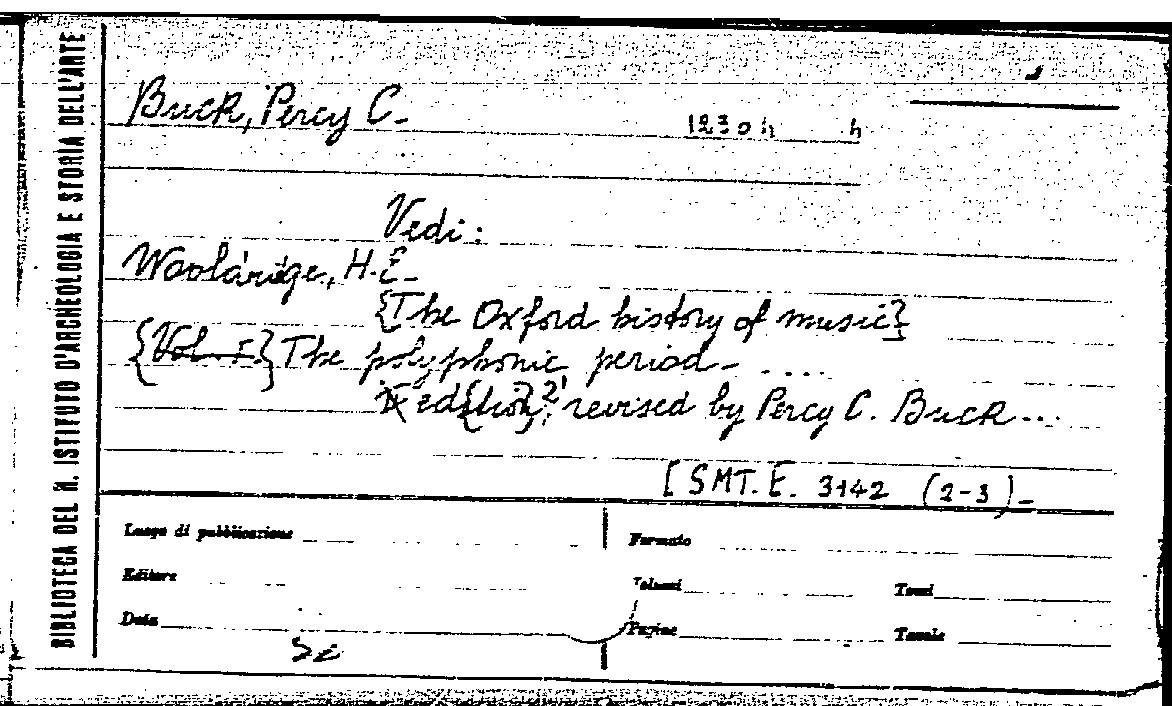 BIBLIOTECA DEL R. ISTITUTO D'ARCHEOLOGIA E STORIA DELL'ARTE
Buck, Percy C.
1230 h h
Vedi:
Wooldridge, H.E.
{The Oxford history of music}
{Vol. I.} The polyphonic period ....
edition, revised by Percy C. Buck ...
[SMT. E. 3142 (2-3)
Luogo di pubblicazione
Formato
Editore
Volumi
Tomi
Data
Pagine
Tavole